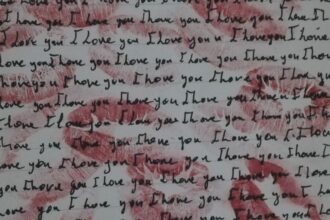 I love you I love you I love you I love
love you I love you I love you I love you
I love you I love you I love you I love you
you I love you I love you I love you I love
you I love you I love you I love you I love you
I love you I love you I love you I love you I
love you I love you I love you I love you I love
love I love you I love you I love you I love you I I love
you I love you I love you I love you I love you
I love you I love you I love you I love you I love
you I love you I love you I love you I love you
I love you I love you I love you I love you